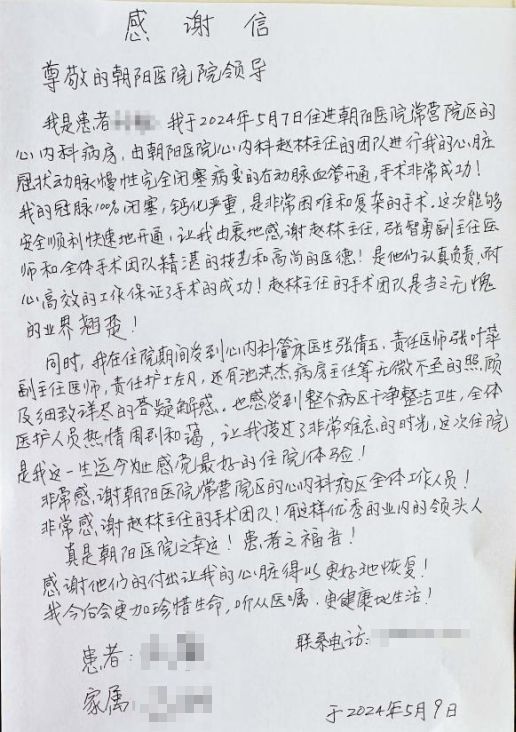 感谢信
尊敬的朝阳医院院领导
我是患者 我于2024年5月7日住进朝阳医院常营院区的
心内科病房，由朝阳医院心内科赵林主任的团队进行我的心脏
冠状动脉慢性完全闭塞病变的右动脉血管开通，手术非常成功！
我的冠脉100%闭塞，钙化严重，是非常困难和复杂的手术。这次能够
安全顺利快速地开通，让我由衷地感谢赵林主任，张智勇副主任医
师和全体手术团队精湛的技艺和高尚的医德！是他们认真负责、耐
心高效的工作保证了手术的成功！赵林主任的手术团队是当之无愧
的业界翘楚！
同时，我在住院期间受到心内科管床医生张倩玉、责任医师张叶萍
副主任医师，责任护士左凡，还有池洪杰病房主任等无微不至的照顾
及细致详尽的答疑解惑，也感受到整个病区干净整洁卫生，全体
医护人员热情周到和蔼，让我度过了非常难忘的时光，这次住院
是我这一生迄今为止感觉最好的住院体验！
非常感谢朝阳医院常营院区的心内科病区全体工作人员！
非常感谢赵林主任的手术团队！有这样优秀的业内的领头人
真是朝阳医院之幸运！患者之福音！
感谢他们的付出让我的心脏得以更好地恢复！
我今后会更加珍惜生命，听从医嘱，更健康地生活！
患者：
联系电话：
家属：
于2024年5月9日